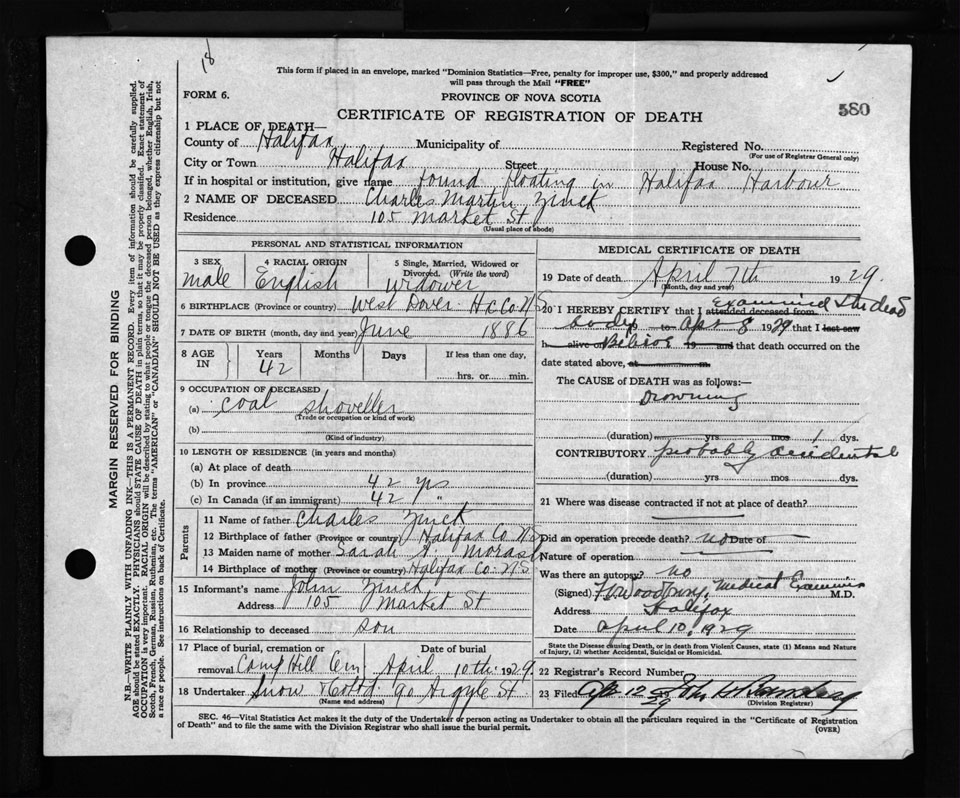 18
This form if placed in an envelope, marked "Dominion Statistics—Free, penalty for improper use, $300," and properly addressed
will pass through the Mail "FREE"
FORM 6.
PROVINCE OF NOVA SCOTIA
580
CERTIFICATE OF REGISTRATION OF DEATH
1 PLACE OF DEATH—
County of Halifax Municipality of Registered No.
(For use of Registrar General only)
City or Town Halifax Street House No.
If in hospital or institution, give name found floating in Halifax Harbour
2 NAME OF DECEASED Charles Martin Zinck
Residence 105 Market St
(Usual place of abode)
PERSONAL AND STATISTICAL INFORMATION
3 SEX 4 RACIAL ORIGIN 5 Single, Married, Widowed or
Divorced. (Write the word)
male English widower
6 BIRTHPLACE (Province or country) West Dover Hx Co NS
7 DATE OF BIRTH (month, day and year) June 1886
8 AGE IN Years Months Days If less than one day,
42 hrs. or min.
9 OCCUPATION OF DECEASED
(a) coal shoveller
(Trade or occupation or kind of work)
(b)
(Kind of industry)
10 LENGTH OF RESIDENCE (in years and months)
(a) At place of death
(b) In province 42 yrs
(c) In Canada (if an immigrant) 42 "
Parents
11 Name of father Charles Zinck
12 Birthplace of father (Province or country) Halifax Co NS
13 Maiden name of mother Sarah A. Morash
14 Birthplace of mother (Province or country) Halifax Co. NS
15 Informant's name John Zinck
Address 105 Market St
16 Relationship to deceased son
17 Place of burial, cremation or Date of burial
removal Camp Hill Cem April 10th 1929
18 Undertaker Snow & Co Ltd 90 Argyle St
(Name and address)
MEDICAL CERTIFICATE OF DEATH
19 Date of death April 7th 1929
(Month, day and year)
20 I HEREBY CERTIFY that I attended deceased from examined the dead
body to Apr 8 1929 that I last saw
h alive on 19 and that death occurred on the
date stated above, at m.
The CAUSE OF DEATH was as follows:—
Drowning
(duration) yrs mos 1 dys.
CONTRIBUTORY probably accidental
(duration) yrs. mos dys.
21 Where was disease contracted if not at place of death?
Did an operation precede death? no Date of
Nature of operation
Was there an autopsy? no
(Signed) Medical Examiner M.D.
Address Halifax
Date April 10, 1929
State the Disease causing Death, or in death from Violent Causes, state (1) Means and Nature
of Injury, (2) whether Accidental, Suicidal or Homicidal.
22 Registrar's Record Number
23 Filed Apr 12 29
(Division Registrar)
SEC. 46—Vital Statistics Act makes it the duty of the Undertaker or person acting as Undertaker to obtain all the particulars required in the "Certificate of Registration
of Death" and to file the same with the Division Registrar who shall issue the burial permit.
(OVER)
MARGIN RESERVED FOR BINDING
N.B.—WRITE PLAINLY WITH UNFADING INK—THIS IS A PERMANENT RECORD. Every item of information should be carefully supplied.
AGE should be stated EXACTLY. PHYSICIANS should STATE CAUSE OF DEATH in plain terms, so that it may be properly classified. Exact statement of
OCCUPATION is very important. RACIAL ORIGIN will be described by stating to what people or tongue the deceased person belonged, whether English, Irish,
Scotch, French, German, Russian, Ruthenian, etc. The terms "AMERICAN" or "CANADIAN" SHOULD NOT BE USED as they express citizenship but not
a race or people. See instructions on back of Certificate.